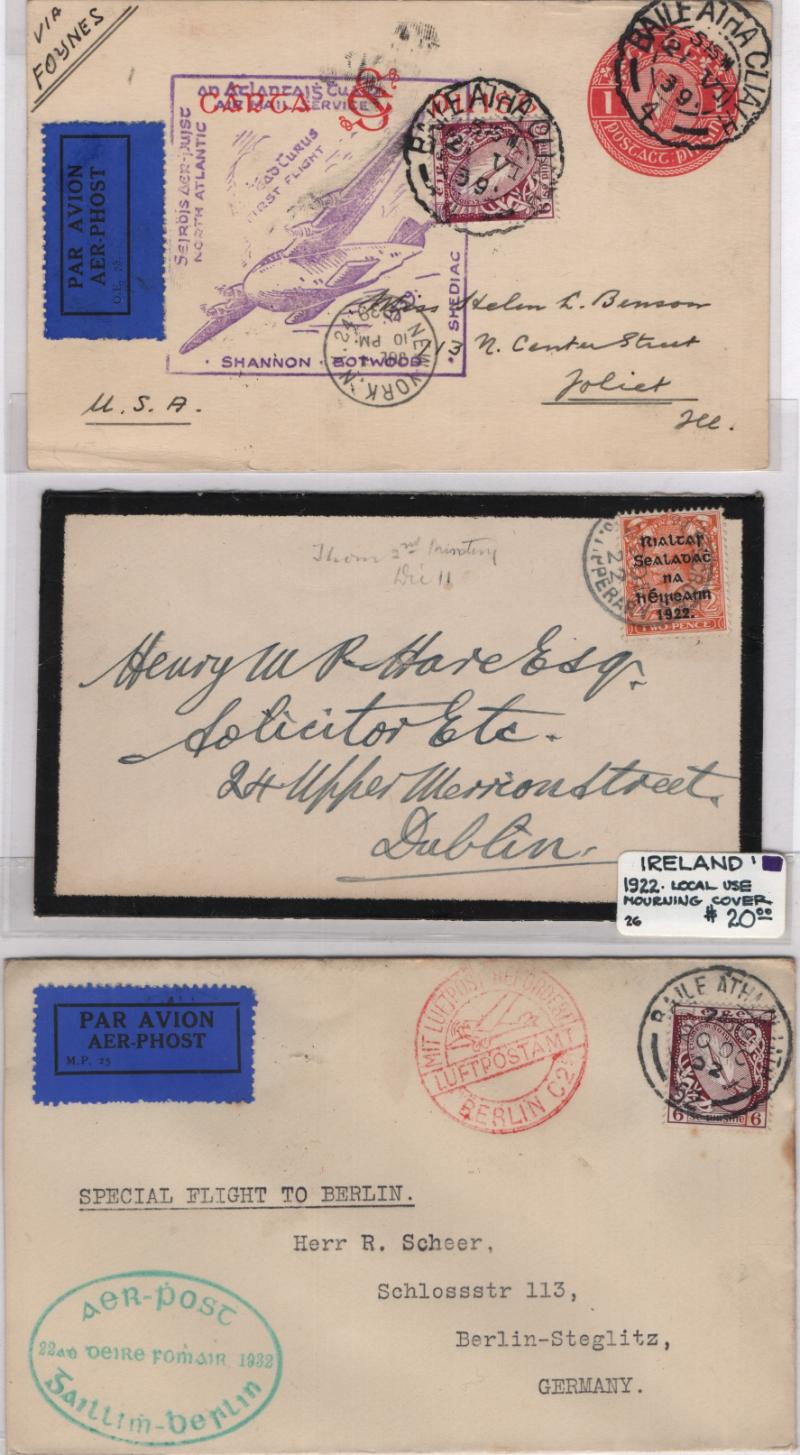 VIA
FOYNES
An Atlantais Tuaid
CARTA
AIR MAIL SERVICE
Seirbís Aer-Puist
NORTH ATLANTIC
Céad Turus
FIRST FLIGHT
SHEDIAC
· SHANNON · BOTWOOD ·
BAILE ATHA CLIATH
39
1
postact pinginn
BAILE ATHA
39
PAR AVION
AER-PHOST
NEW YORK, N.Y.
10 PM
Miss Helen L. Benson
113 N. Center Street
Joliet
Ill.
U.S.A.
Thom 2nd Printing
Die II
22
Rialtas
Sealadaċ
na
hÉireann
1922.
TWO-PENCE
Henry W R Hare Esq.
Solicitor Etc.
24 Upper Merrion Street.
Dublin.
IRELAND
1922. LOCAL USE
MOURNING COVER
26 $ 20.00
PAR AVION
AER-PHOST
M.P. 25
MIT LUFTPOST BEFÖRDERT
LUFTPOSTAMT
BERLIN C2
BAILE ATHA CLIATH
32
6 6
SPECIAL FLIGHT TO BERLIN.
Herr R. Scheer,
Schlossstr 113,
Berlin-Steglitz,
GERMANY.
Aer-Post
22ad Deire Foṁair 1932
Gaillim-Berlin